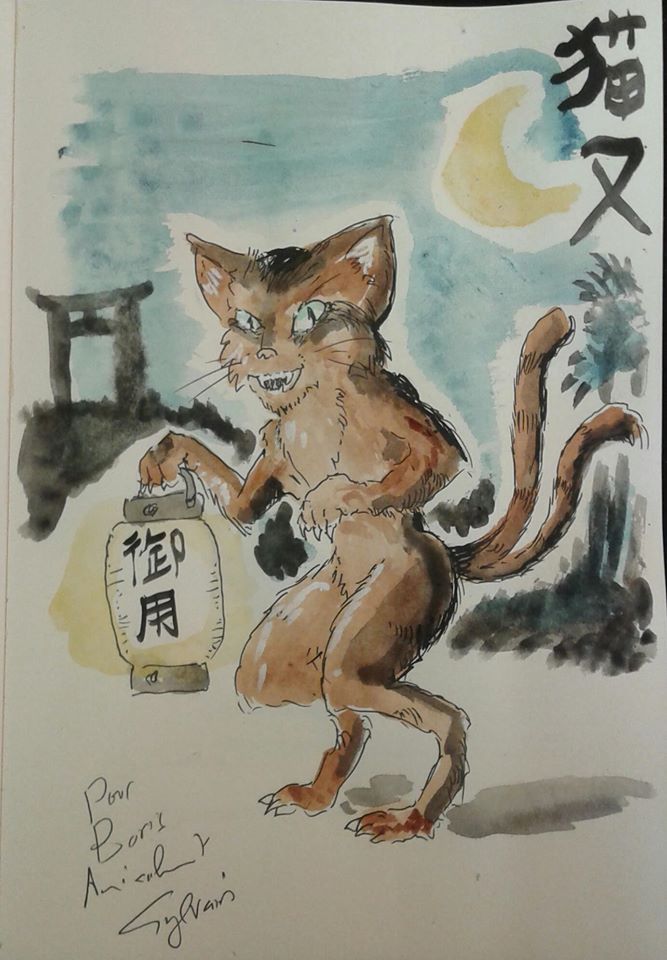 猫又
御用
Pour
Boris
Amicalement
Sylvain